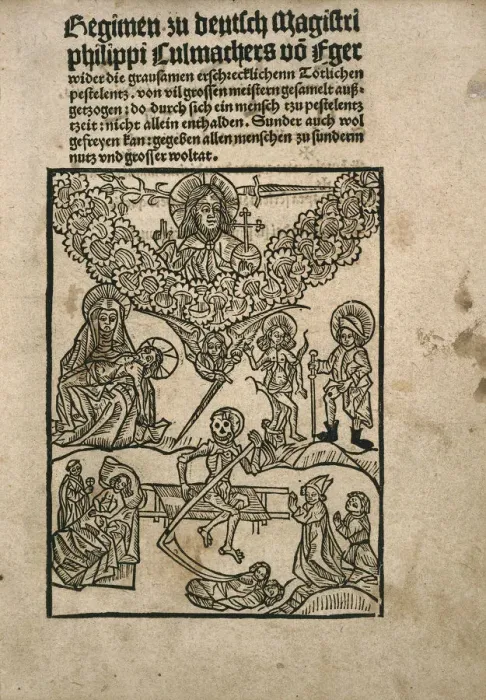 Regimen zu deutsch Magistri
philippi Culmachers vō Eger
wider die grausamen erschrecklichenn Tötlichen
pestelentz. von vil grossen meistern gesamelt auß-
getzogen: do durch sich ein mensch tzu pestelentz
tzeit: nicht allein enthalden. Sunder auch wol
gefreyen kan: gegeben allen menschen zu sunderm
nutz vnd grosser woltat.